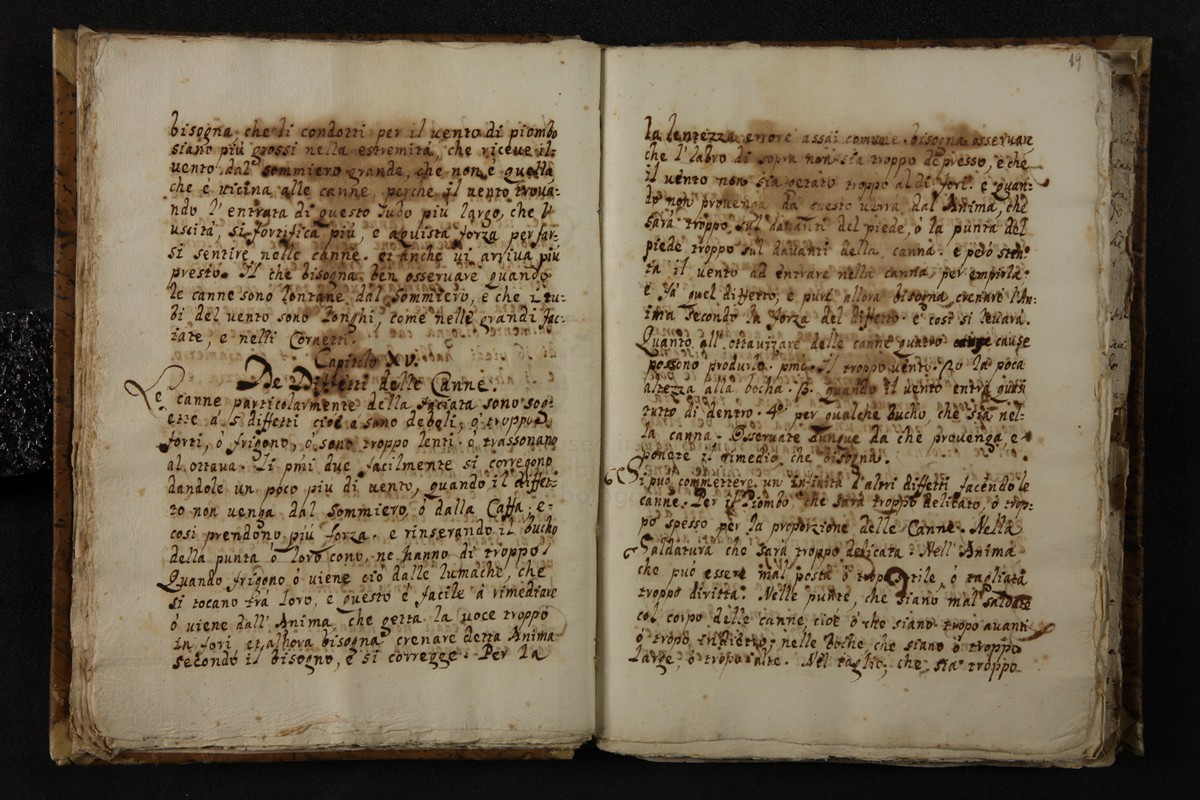 bisogna che li condotti per il uento di piombo
siano più grossi nella estremità, che riceue il
uento dal sommiero grande, che non è quella
che è uicina alle canne, perche il uento troua-
ndo l'entrata di questo Tubo più largo, che l'
uscita, si fortifica più, e aquista forza per far-
si sentire nelle canne. et anche ui arriua più
presto. Il che bisogna ben osseruare quando
le canne sono lontane dal sommiero, e che i tu-
bi del uento sono longhi, come nelle grandi fac-
iate, e nelli Cornetti.
Capitolo XV.
De Diffetti delle Canne.
Le canne particolarmente della faciata sono sog-
ette a 5 diffetti cioè o sono deboli, o troppo
forti, ò frigono, ò sono troppo lenti. ò trassonano
al ottaua. Li pmi due facilmente si corregono
dandole un poco più di uento, quando il diffet-
to non uenga dal sommiero, ò dalla Cassa; e
così prendono più forza. e rinserando il bucho
della punta ò loro cono, ne hanno di troppo.
Quando frigono ò uiene ciò dalle lumache, che
si tocano trà loro, e questo è facile à rimediare
ò uiene dall'Anima che getta la uoce troppo
in fori, et alhora bisogna crenare detta Anima
secondo il bisogno, e si corregge. Per la
19
la lentezza errore assai comune. bisogna osseruare
che l'labro di sopra non sia troppo depresso, e che
il uento non sia getato troppo al di fori. e quan-
do non prouenga da questo uerrà dal Anima, che
sarà troppo sul dauanti del piede, o la punta del
piede troppo sul dauanti della canna. e però sten-
ta il uento ad entrare nella canna, per empirla.
e fà quel diffetto, e pure allora bisogna crenare l'An-
ima secondo la forza del diffetto. e così si leuarà.
Quanto all'ottauizare delle canne quatro cause
possono produrlo. pmo. Il troppo uento. 2o la poca
altezza alla bocha. 3o. quando il uento entra quasi
tutto di dentro. 4o. per qualche bucho, che sia nel-
la canna. Osseruate dunque da che prouenga, e
ponete il rimedio che bisogna.
Si può commettere un'infinità d'altri diffetti facendo le
canne. Per il Piombo, che sarà troppo delicato, ò trop-
po spesso per la proporzione delle Canne. Nella
Saldatura che sarà troppo delicata. Nell'Anima
che può essere mal posta ò tropo sotile, ò tagliata
troppo diritta. Nelle punte, che siano mal saldate
col corpo delle canne, cioè ò che siano tropo auanti
ò tropo indietro; nelle boche che siano ò troppo
large, ò tropo alte. Nel taglio, che sia troppo